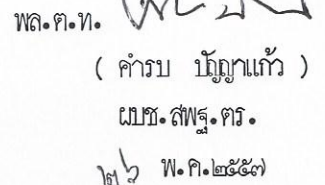 พล.ต.ท.
( คำรบ ปัญญาแก้ว )
ผบช.สพฐ.ตร.
๒๖ พ.ค.๒๕๕๗